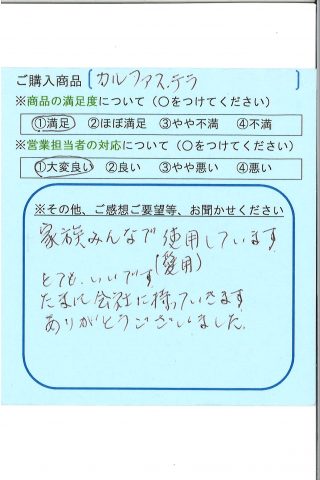 ご購入商品〔カルファス.テラ〕
※商品の満足度について(○をつけてください)
①満足 ②ほぼ満足 ③やや不満 ④不満
※営業担当者の対応について(○をつけてください)
①大変良い ②良い ③やや悪い ④悪い
※その他、ご感想ご要望等、お聞かせください
家族みんなで使用しています
(愛用)
とても、いいです
たまに会社に持っていきます
ありがとうございました.